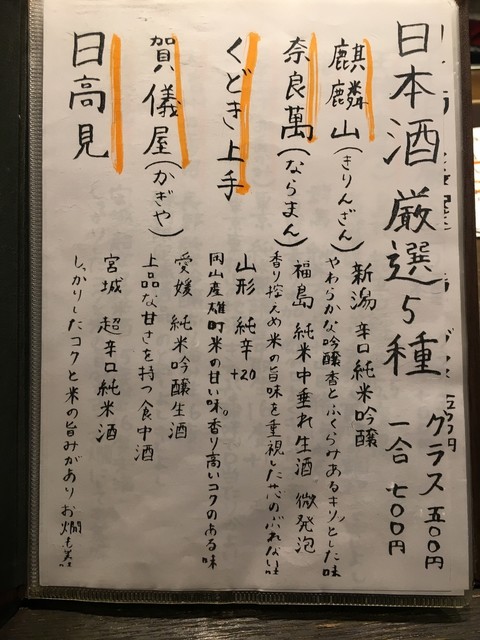 日本酒 厳選5種
グラス 五〇〇円
一合 七〇〇円
麒麟山(きりんざん)
新潟 辛口純米吟醸
やわらかな吟醸香とふくらみあるキリッとした味
奈良萬(ならまん)
福島 純米中垂れ生酒 微発泡
香り控えめ米の旨味を重視した芯のぶれない味
くどき上手
山形 純辛+20
岡山産雄町米の甘い味。香り高いコクのある味
賀儀屋(かぎや)
愛媛 純米吟醸生酒
上品な甘さを持つ食中酒
日高見
宮城 超辛口純米酒
しっかりしたコクと米の旨みがありお燗も美味